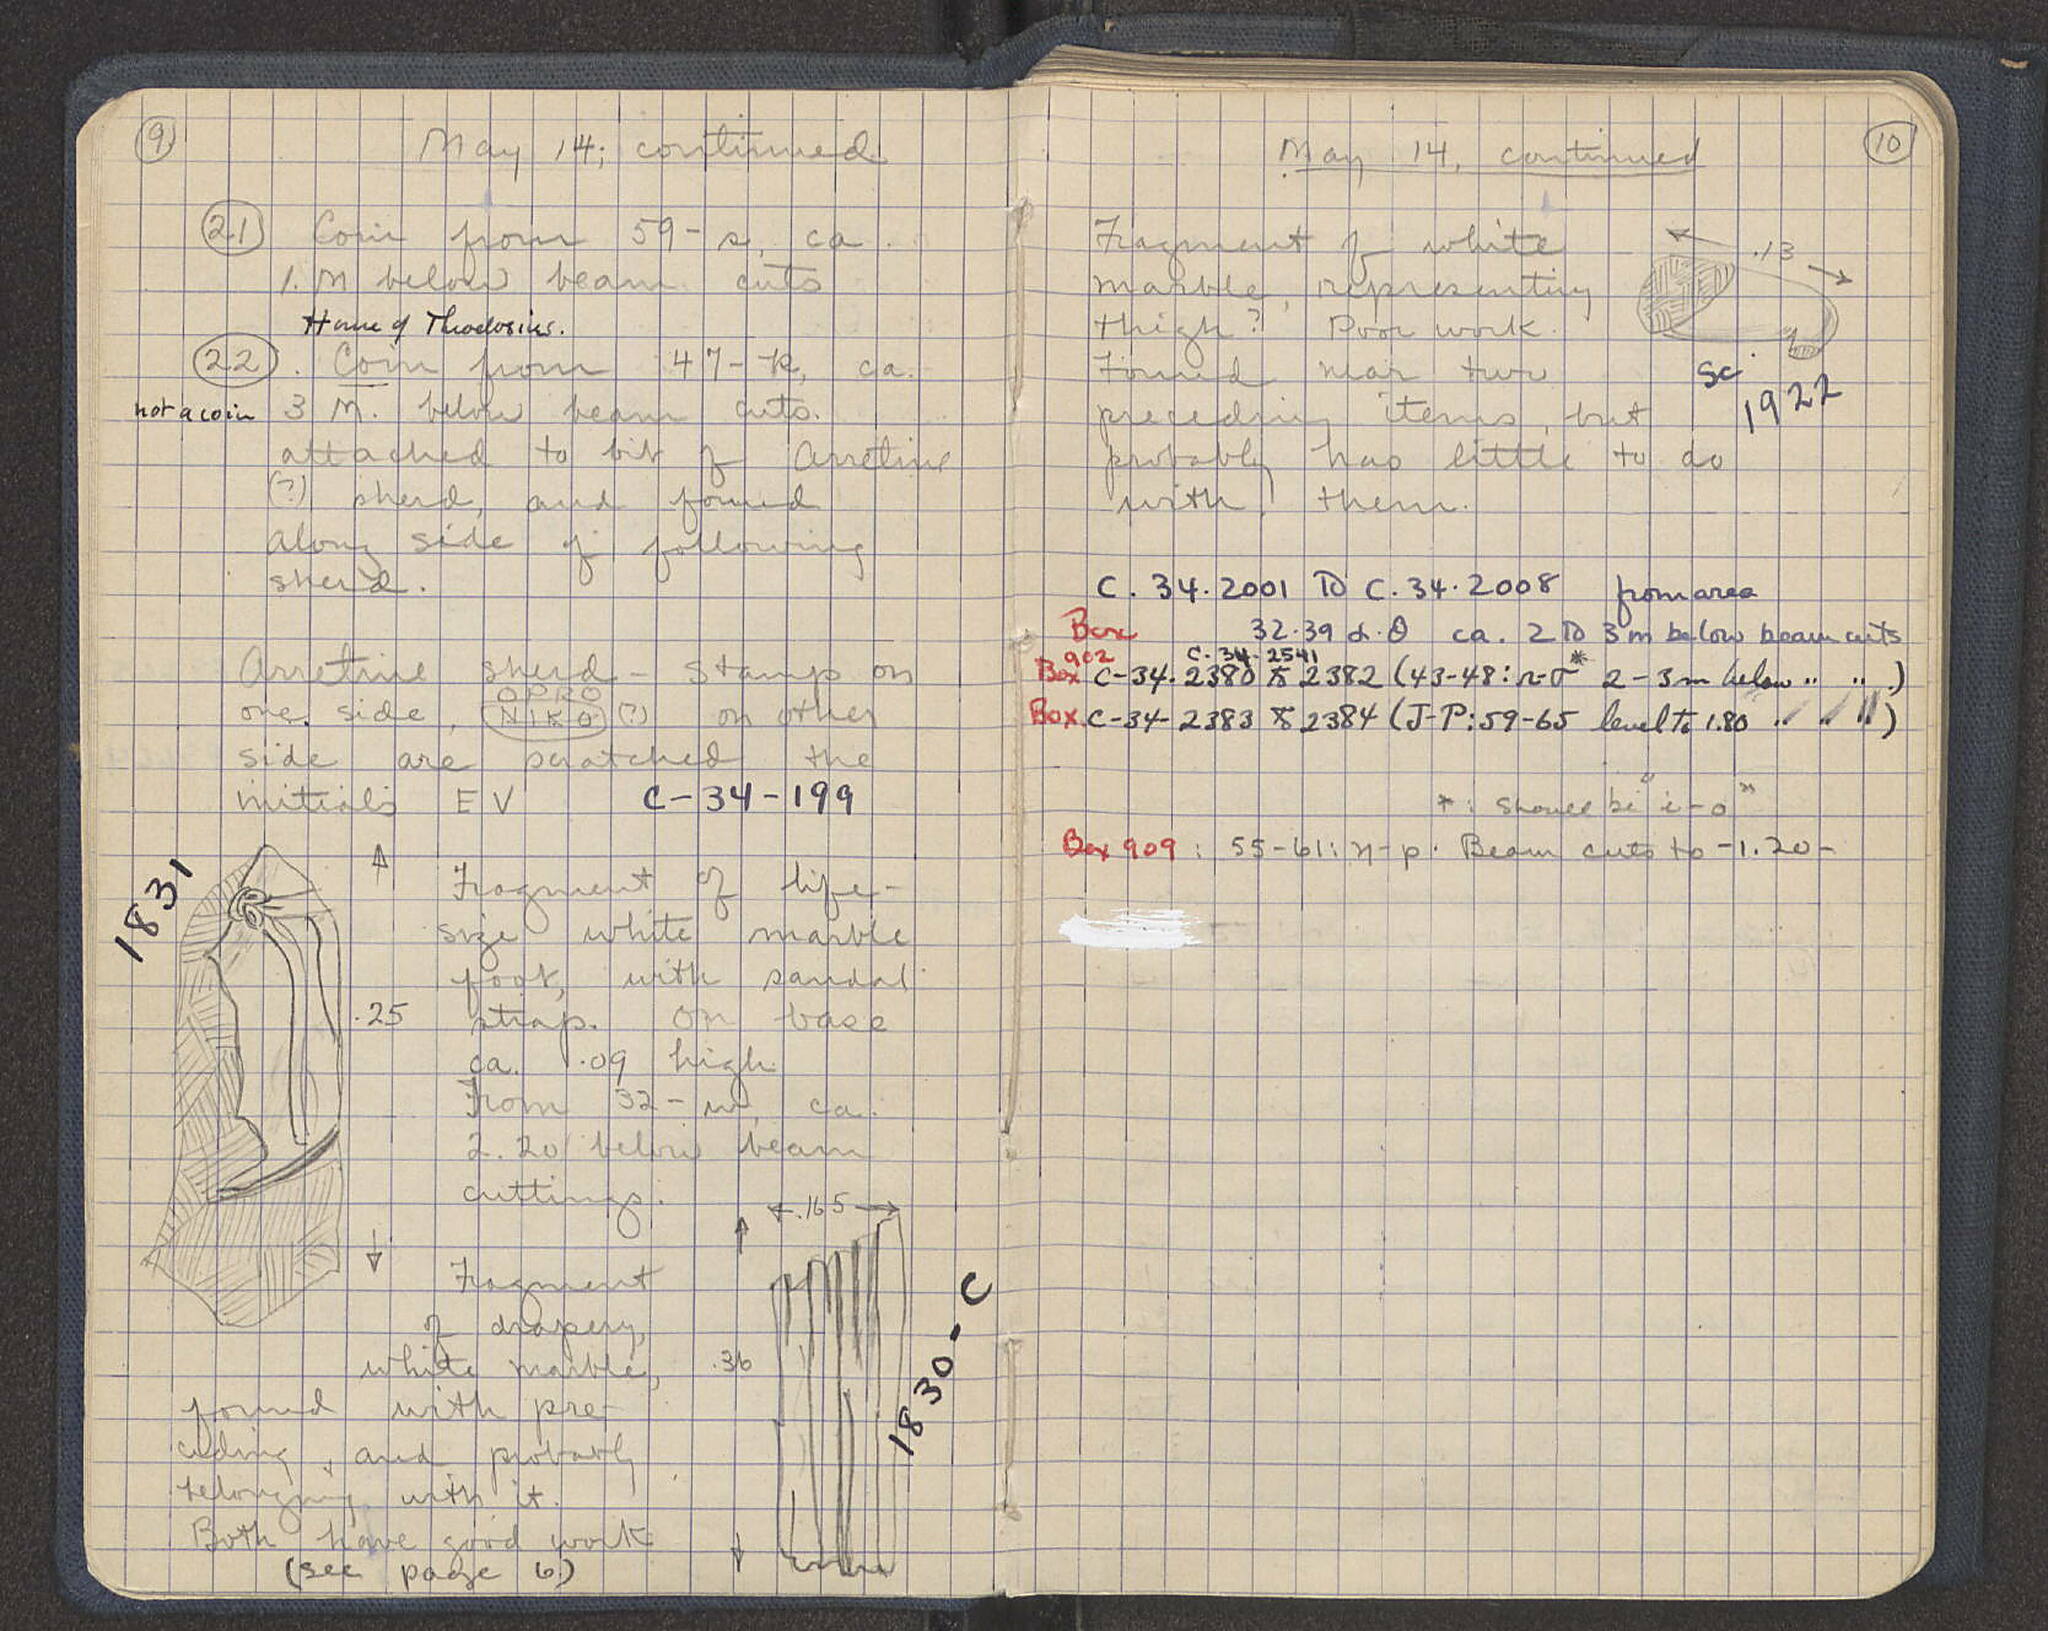 9
May 14; continued
21 Coin from 59-s, ca.
1. M below beam cuts
House of Theodosius.
22. Coin from 47-k, ca.
not a coin 3 M. below beam cuts.
attached to bit of Arretine
(?) sherd, and found
along side of following
sherd.
Arretine sherd - stamp on
one side, OPRO NIKO (?) on other
side are scratched the
initials EV C-34-199
1831
Fragment of life-
size white marble
foot, with sandal
.25 strap. On base
ca. .09 high.
From 32- ca.
2.20 below beam
cuttings.
.165
Fragment
of drapery,
white marble, .36
found with pre-
ceding, and probably
belonging with it.
Both have good work
(see page 6)
1830-C
10
May 14, continued
Fragment of white
marble, representing
thigh? Poor work.
.13
Found near two
preceding items, but
probably has little to do
with them.
Sc.
1922
C.34.2001 TO C.34.2008 from area
Box 32.39 d.θ ca. 2 TO 3m below beam cuts
902 C-34-2541
Box C-34.2380 & 2382 (43-48: * 2-3m below " " )
Box C-34-2383 & 2384 (J-P:59-65 level to 1.80 " " " )
*: should be "i-o"
Box 909: 55-61: η-p. Beam cuts to -1.20-